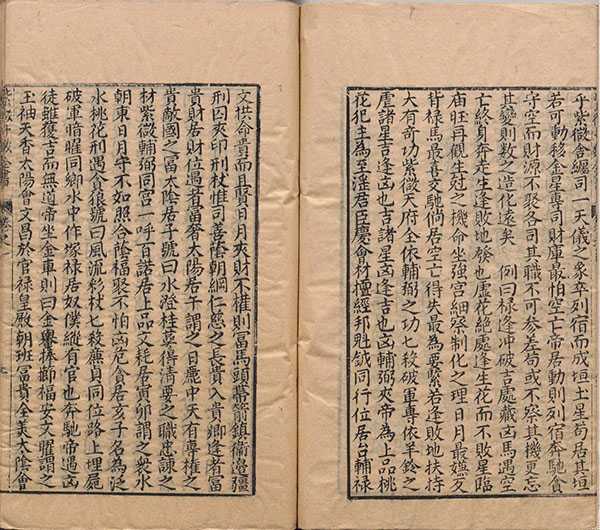 乎紫微舍躔司一天儀之象卒列宿而成垣土星苟居其垣
若可動移金星專司財庫最怕空亡帝居動則列宿奔馳貪
守空而財源不聚各司其職不可參差苟或不察其機更忘
其變則數之造化遠矣　例曰禄逢冲破吉處藏凶馬遇空
亡終身奔走生逢敗地發也虛花絕處逢生花而不敗星臨
庙旺再觀生尅之機命坐強宫細察制化之理日月最嫌反
背禄馬最喜交馳倘居空亡得失最為要緊若逢敗地扶持
大有奇功紫微天府全依輔弼之功七殺破軍專依羊鈴之
虐諸星吉逢凶也吉諸星凶逢吉也凶輔弼夾帝為上品桃
花犯主為至淫君臣慶會材擅經邦魁鉞同行位居台輔禄
文拱命貴而且賢日月夾財不權則富馬頭帶箭鎮衛邊疆
刑囚夾印刑杖惟司善蔭朝綱仁慈之長貴入貴鄉逢者富
貴財居財位遇者富奢太陽居午謂之日麗中天有專權之
貴敵國之富太陰居子號曰水澄桂萼得清要之職忠諫之
材紫微輔弼同宫一呼百諾居上品文耗居寅卯謂之衆水
朝東日月守不如照合蔭福聚不怕凶危貪居亥子名為泛
水桃花刑遇貪狼號曰風流彩杖七殺廉貞同位路上埋屍
破軍暗曜同鄉水中作塚禄居奴僕縱有官也奔馳帝遇凶
徒雖獲吉而無道帝坐金車則曰金轝捧櫛福安文曜謂之
玉袖天香太陽會文昌於官禄皇殿朝班富貴全美太陰會